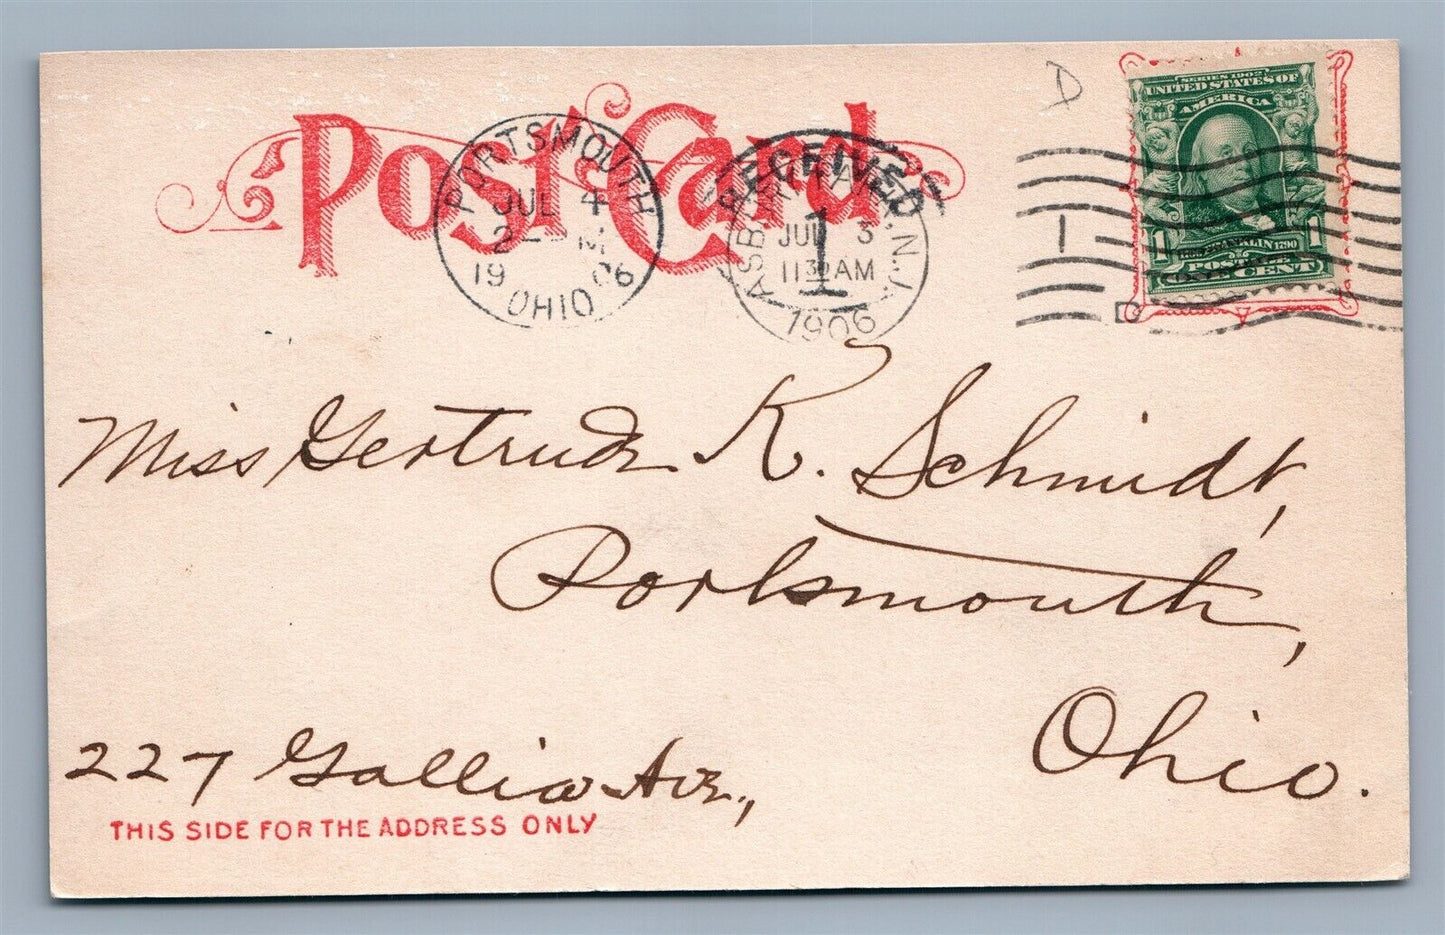 D
SERIES 1902
UNITED STATES OF
AMERICA
FRANKLIN 1790
POSTAGE
1 ONE CENT 1
Post Card
PORTSMOUTH
JUL 4
2
1906
OHIO
RECEIVED
1
ASBURY PARK, N.J.
JUL 3
11 30 AM
1906
1
Miss Gertrude K. Schmidt,
Portsmouth,
Ohio.
227 Gallia Ave.,
THIS SIDE FOR THE ADDRESS ONLY